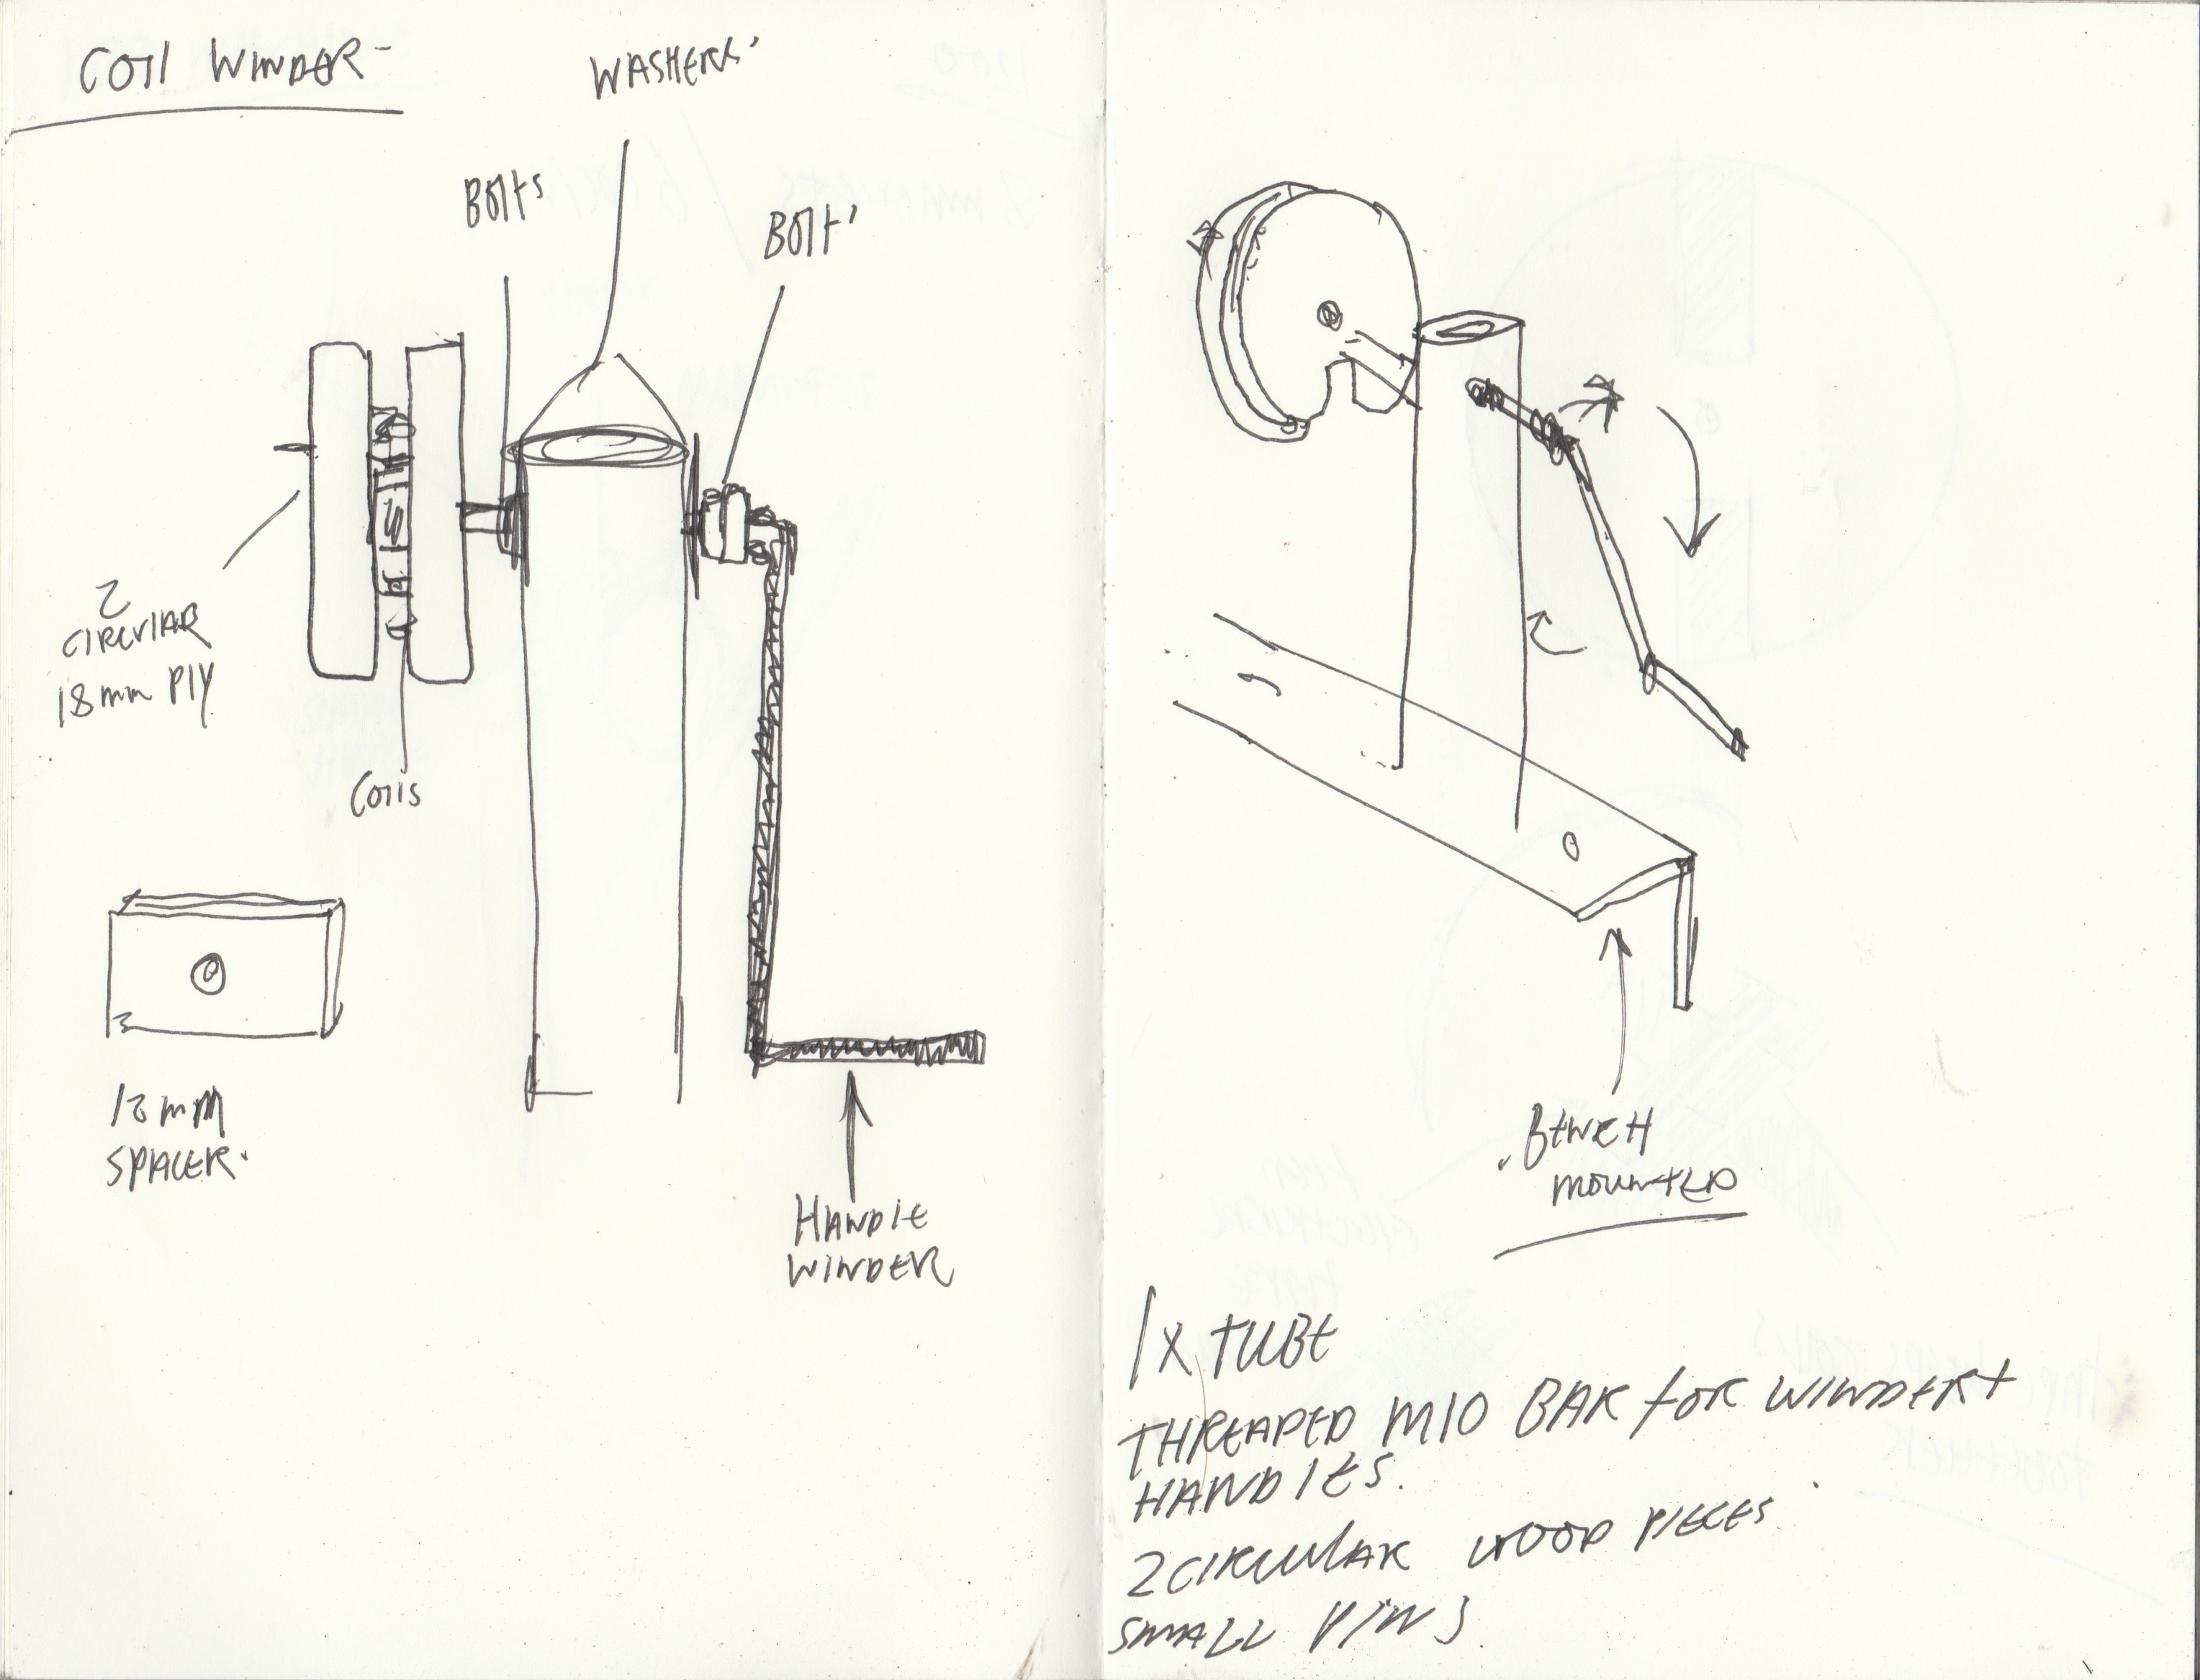 COIL WINDER -
WASHERS'
BOltS
BOlt'
2
CIRCULAR
18mm PlY
COILS
12 mm
SPACER.
HANDlE
WINDER
BENCH
MOUNTED
1X TUBE
THREADED M10 BAR FOR WINDER +
HANDlES.
2 CIRCULAR WOOD PIECES
SMALL PINS